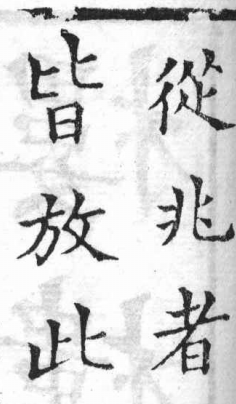 從兆者
皆放此